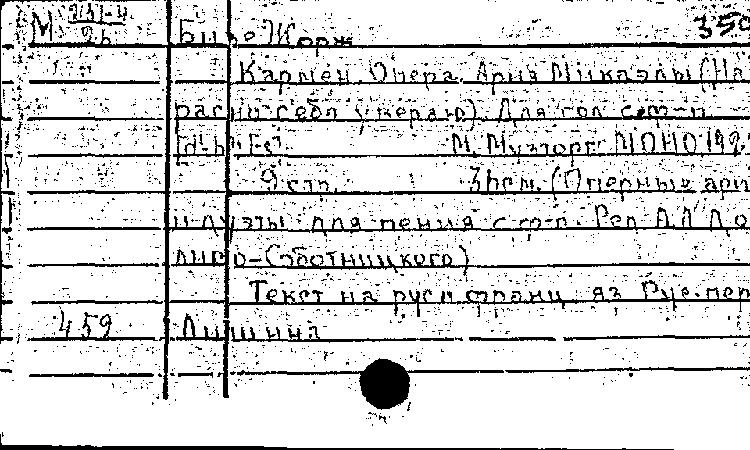 М
Бизе Жорж 350
Кармен. Опера. Ария Микаэлы (На
расно себя уверяю). Для гол. с ф-п.
[d¹-h² Es]. М. Музторг МОНО 192
9 стр. (Оперные ари
и дуэты для пения с ф-п. Ред. А. Л. До
ливо-Соботницкого)
Текст на русск. франц. яз. Рус. пер
459 Лишина